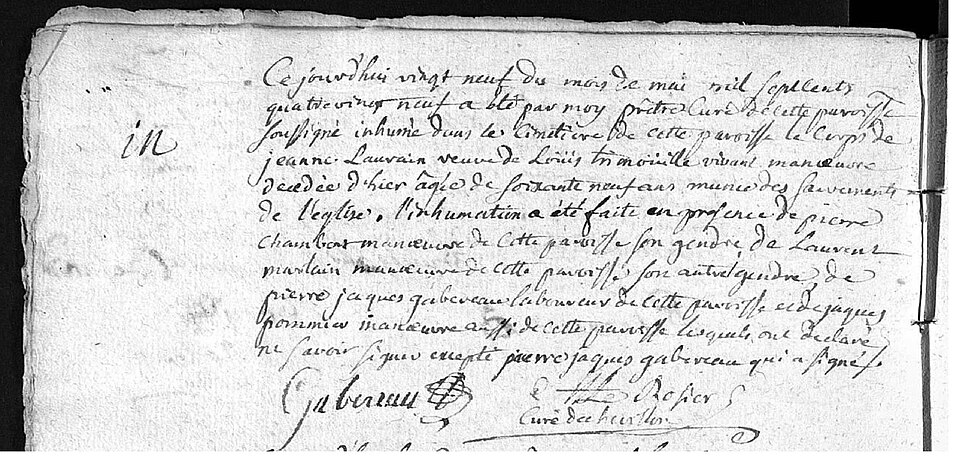 Ce jourd'hui vingt neuf du mois de mai mil septcents
quatrevingt neuf a été par moy prêtre Curé de cette paroisse
soussigné inhumée dans le Cimetière de cette paroisse le Corps de
in
jeanne Laurain veuve de Loüis trimouille vivant manœuvre
décédée d'hier âgée de soixante neuf ans munie des sacrements
de l'église. l'inhumation a été faite en présence de pierre
chambon manœuvre de cette paroisse son gendre de Laurent
marlain manœuvre de cette paroisse son autre gendre, de
pierre jaques gabereau laboureur de cette paroisse et de jaques
pommier manœuvre aussi de cette paroisse lesquels ont déclaré
ne savoir signer excepté pierre jaques gabereau qui a signé.
Gabereau Rosier
Curé de